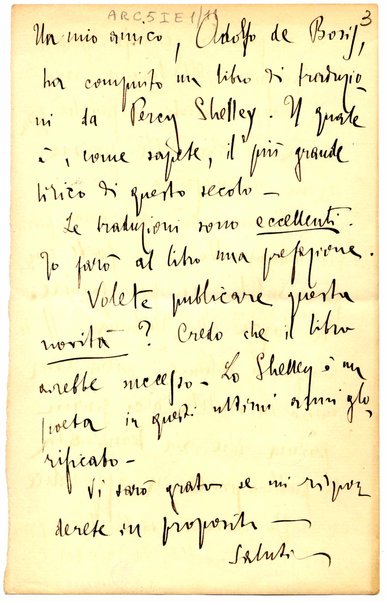 ARC.5 I E 1/11
3
Un mio amico, Adolfo de Bosis,
ha compiuto un libro di traduzio-
ni da Percy Shelley. Il quale
è, come sapete, il più grande
lirico di questo secolo –
Le traduzioni sono eccellenti.
Io farò al libro una prefazione.
Volete publicare questa
novità? Credo che il libro
avrebbe successo – Lo Shelley è un
poeta in questi ultimi anni glo-
rificato –
Vi sarò grato se mi rispon-
derete in proposito –
Saluti